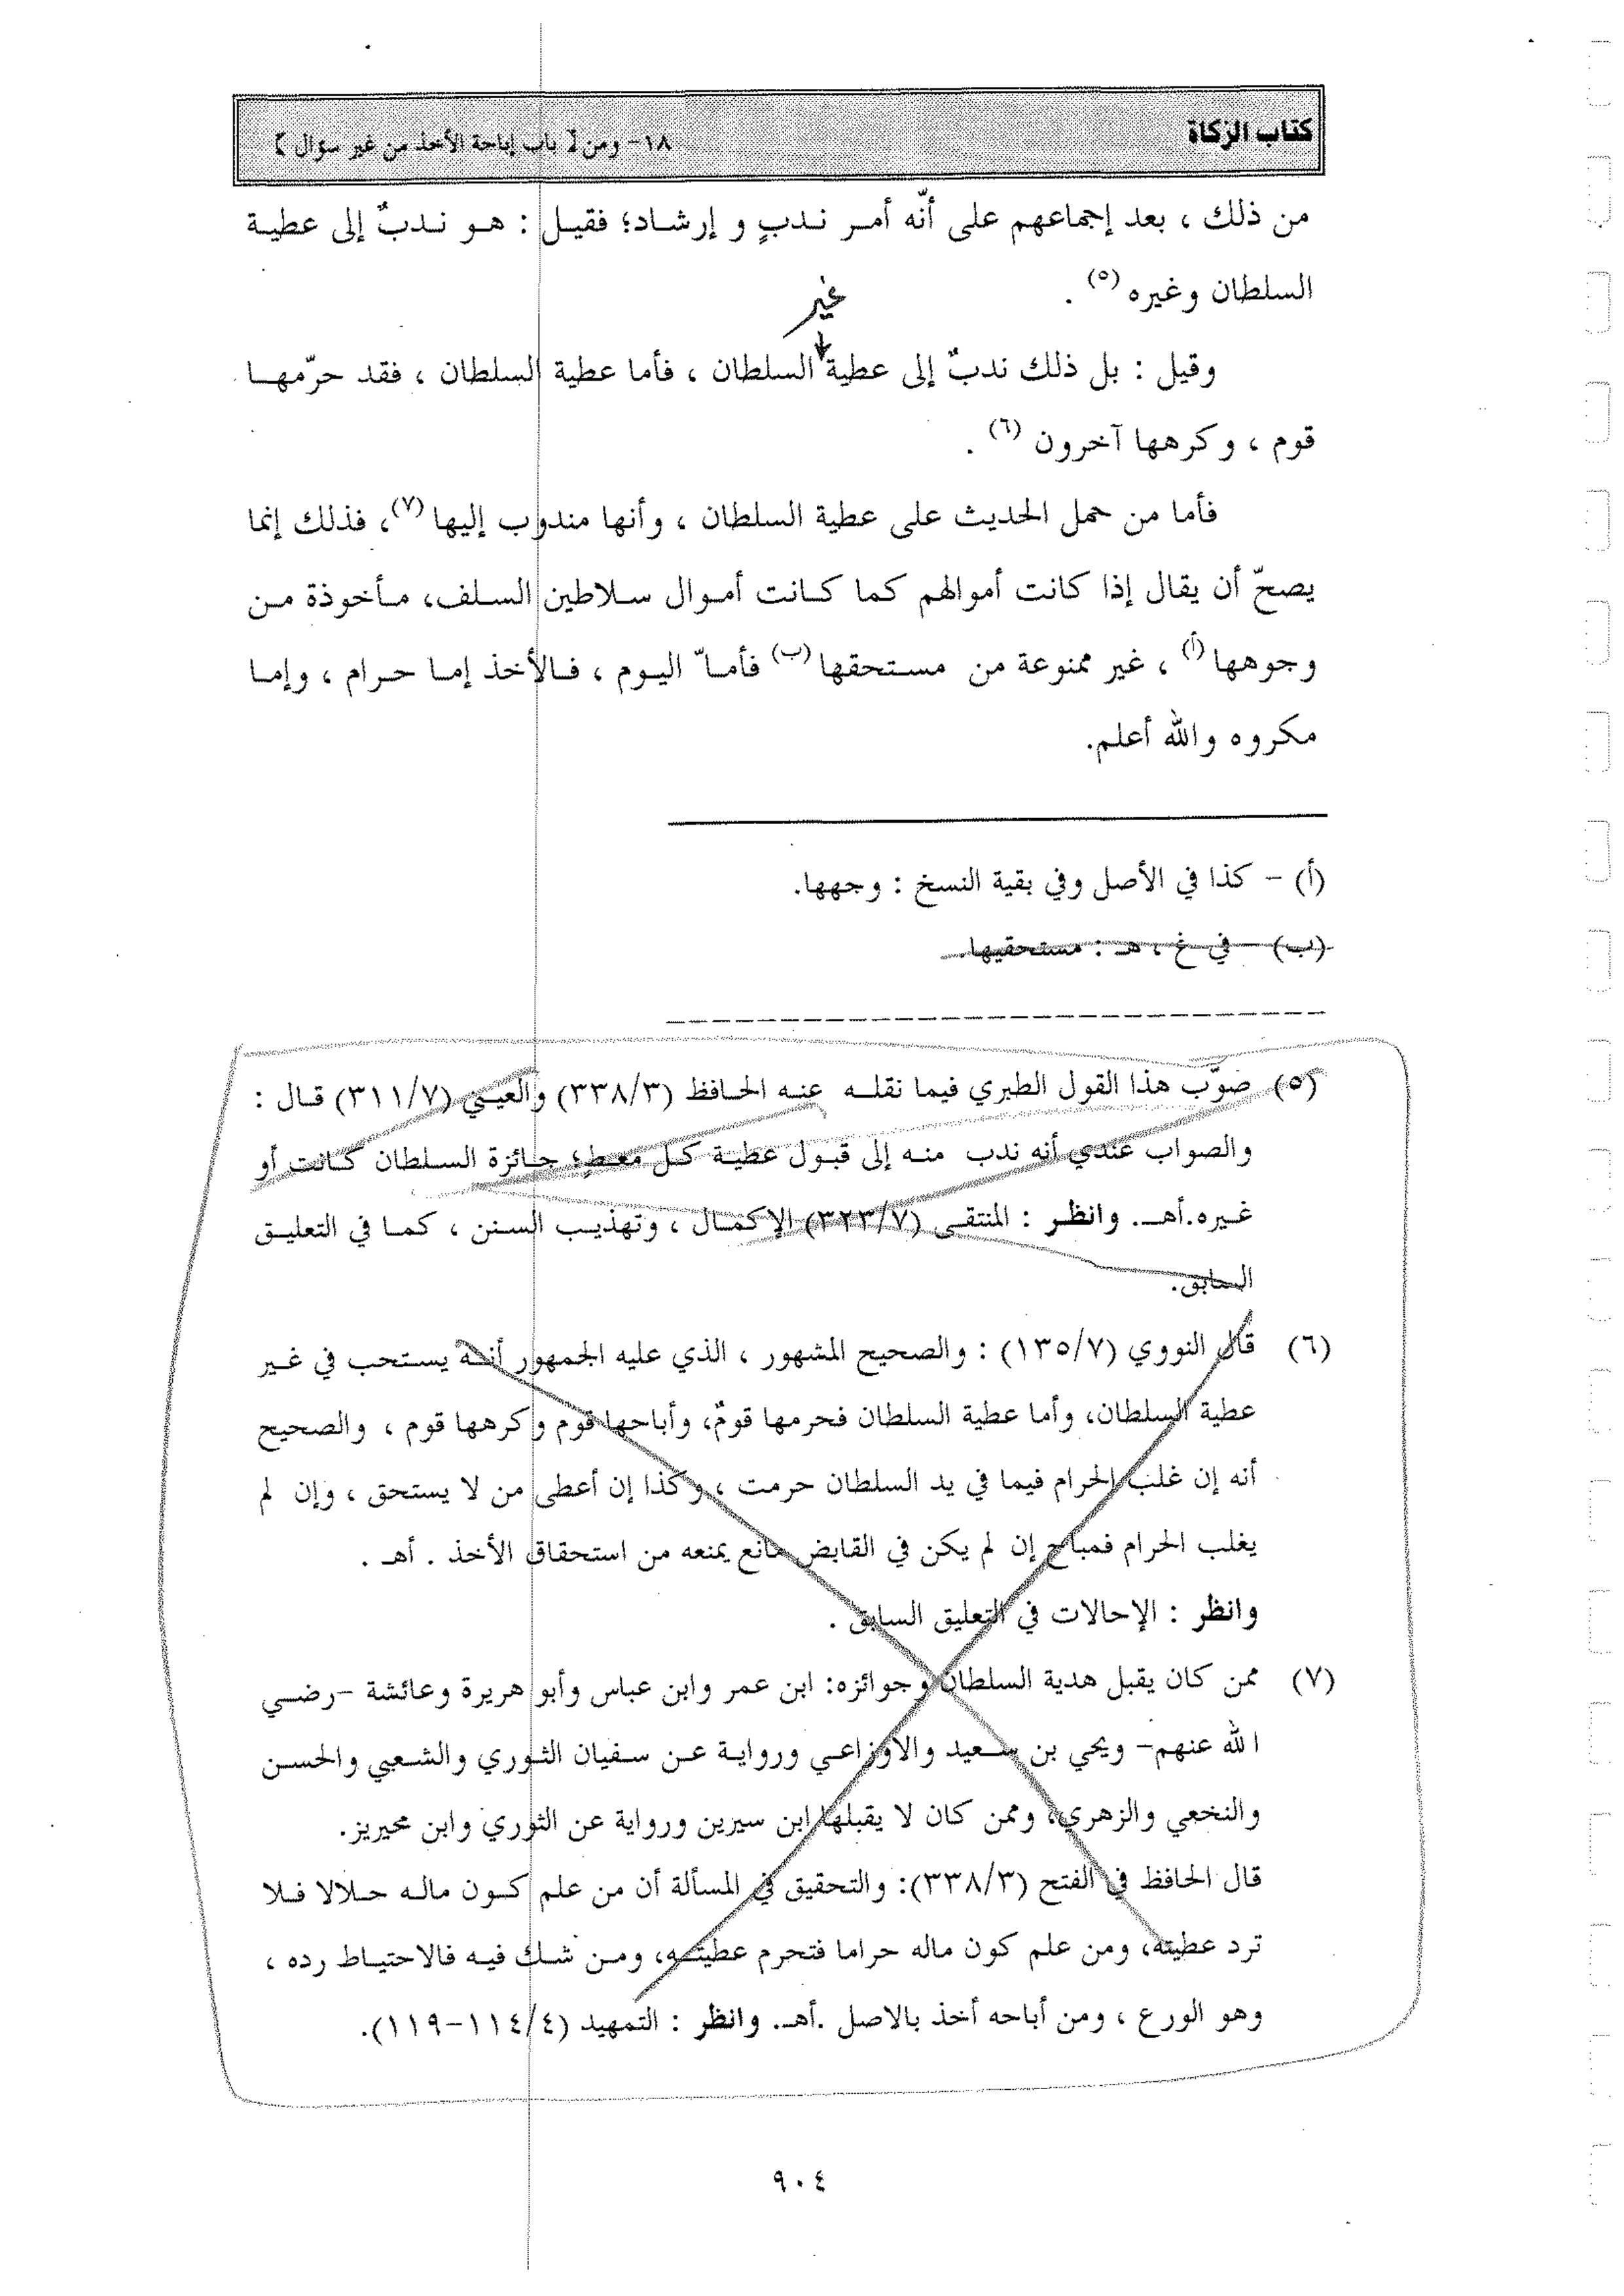 كتاب الزكاة
١٨- ومن { باب إباحة الأخذ من غير سؤال }
من ذلك ، بعد إجماعهم على أنّه أمر ندبٍ و إرشاد؛ فقيل : هو ندبٌ إلى عطية
السلطان وغيره (٥) .
غير
وقيل : بل ذلك ندبٌ إلى عطية السلطان ، فأما عطية السلطان ، فقد حرّمها
قوم ، وكرهها آخرون (٦) .
فأما من حمل الحديث على عطية السلطان ، وأنها مندوب إليها (٧)، فذلك إنما
يصحّ أن يقال إذا كانت أموالهم كما كانت أموال سلاطين السلف، مأخوذة من
وجوهها (أ) ، غير ممنوعة من مستحقها (ب) فأمّا اليوم ، فالأخذ إما حرام ، وإما
مكروه والله أعلم.
(أ) - كذا في الأصل وفي بقية النسخ : وجهها.
(ب) - في غ ، هـ : مستحقيها.
(٥) صوَّب هذا القول الطبري فيما نقله عنه الحافظ (٣٣٨/٣) والعيني (٣١١/٧) قال :
والصواب عندي أنه ندب منه إلى قبول عطية كل معطٍ؛ جائزة السلطان كانت أو
غيره.أهـ. وانظر : المنتقى (٣٢٣/٧) الإكمال ، وتهذيب السنن ، كما في التعليق
السابق.
(٦) قال النووي (١٣٥/٧) : والصحيح المشهور ، الذي عليه الجمهور أنه يستحب في غير
عطية السلطان، وأما عطية السلطان فحرمها قومٌ، وأباحها قوم وكرهها قوم ، والصحيح
أنه إن غلب الحرام فيما في يد السلطان حرمت ، وكذا إن أعطى من لا يستحق ، وإن لم
يغلب الحرام فمباح إن لم يكن في القابض مانع يمنعه من استحقاق الأخذ . أهـ .
وانظر : الإحالات في التعليق السابق .
(٧) ممن كان يقبل هدية السلطان وجوائزه: ابن عمر وابن عباس وأبو هريرة وعائشة -رضي
الله عنهم- ويحي بن سعيد والاوزاعي ورواية عن سفيان الثوري والشعبي والحسن
والنخعي والزهري، وممن كان لا يقبلها ابن سيرين ورواية عن الثوري وابن محيريز.
قال الحافظ في الفتح (٣٣٨/٣): والتحقيق في المسألة أن من علم كون ماله حلالا فلا
ترد عطيته، ومن علم كون ماله حراما فتحرم عطيته، ومن شك فيه فالاحتياط رده ،
وهو الورع ، ومن أباحه أخذ بالاصل .أهـ. وانظر : التمهيد (١١٤/٤-١١٩).
٩٠٤